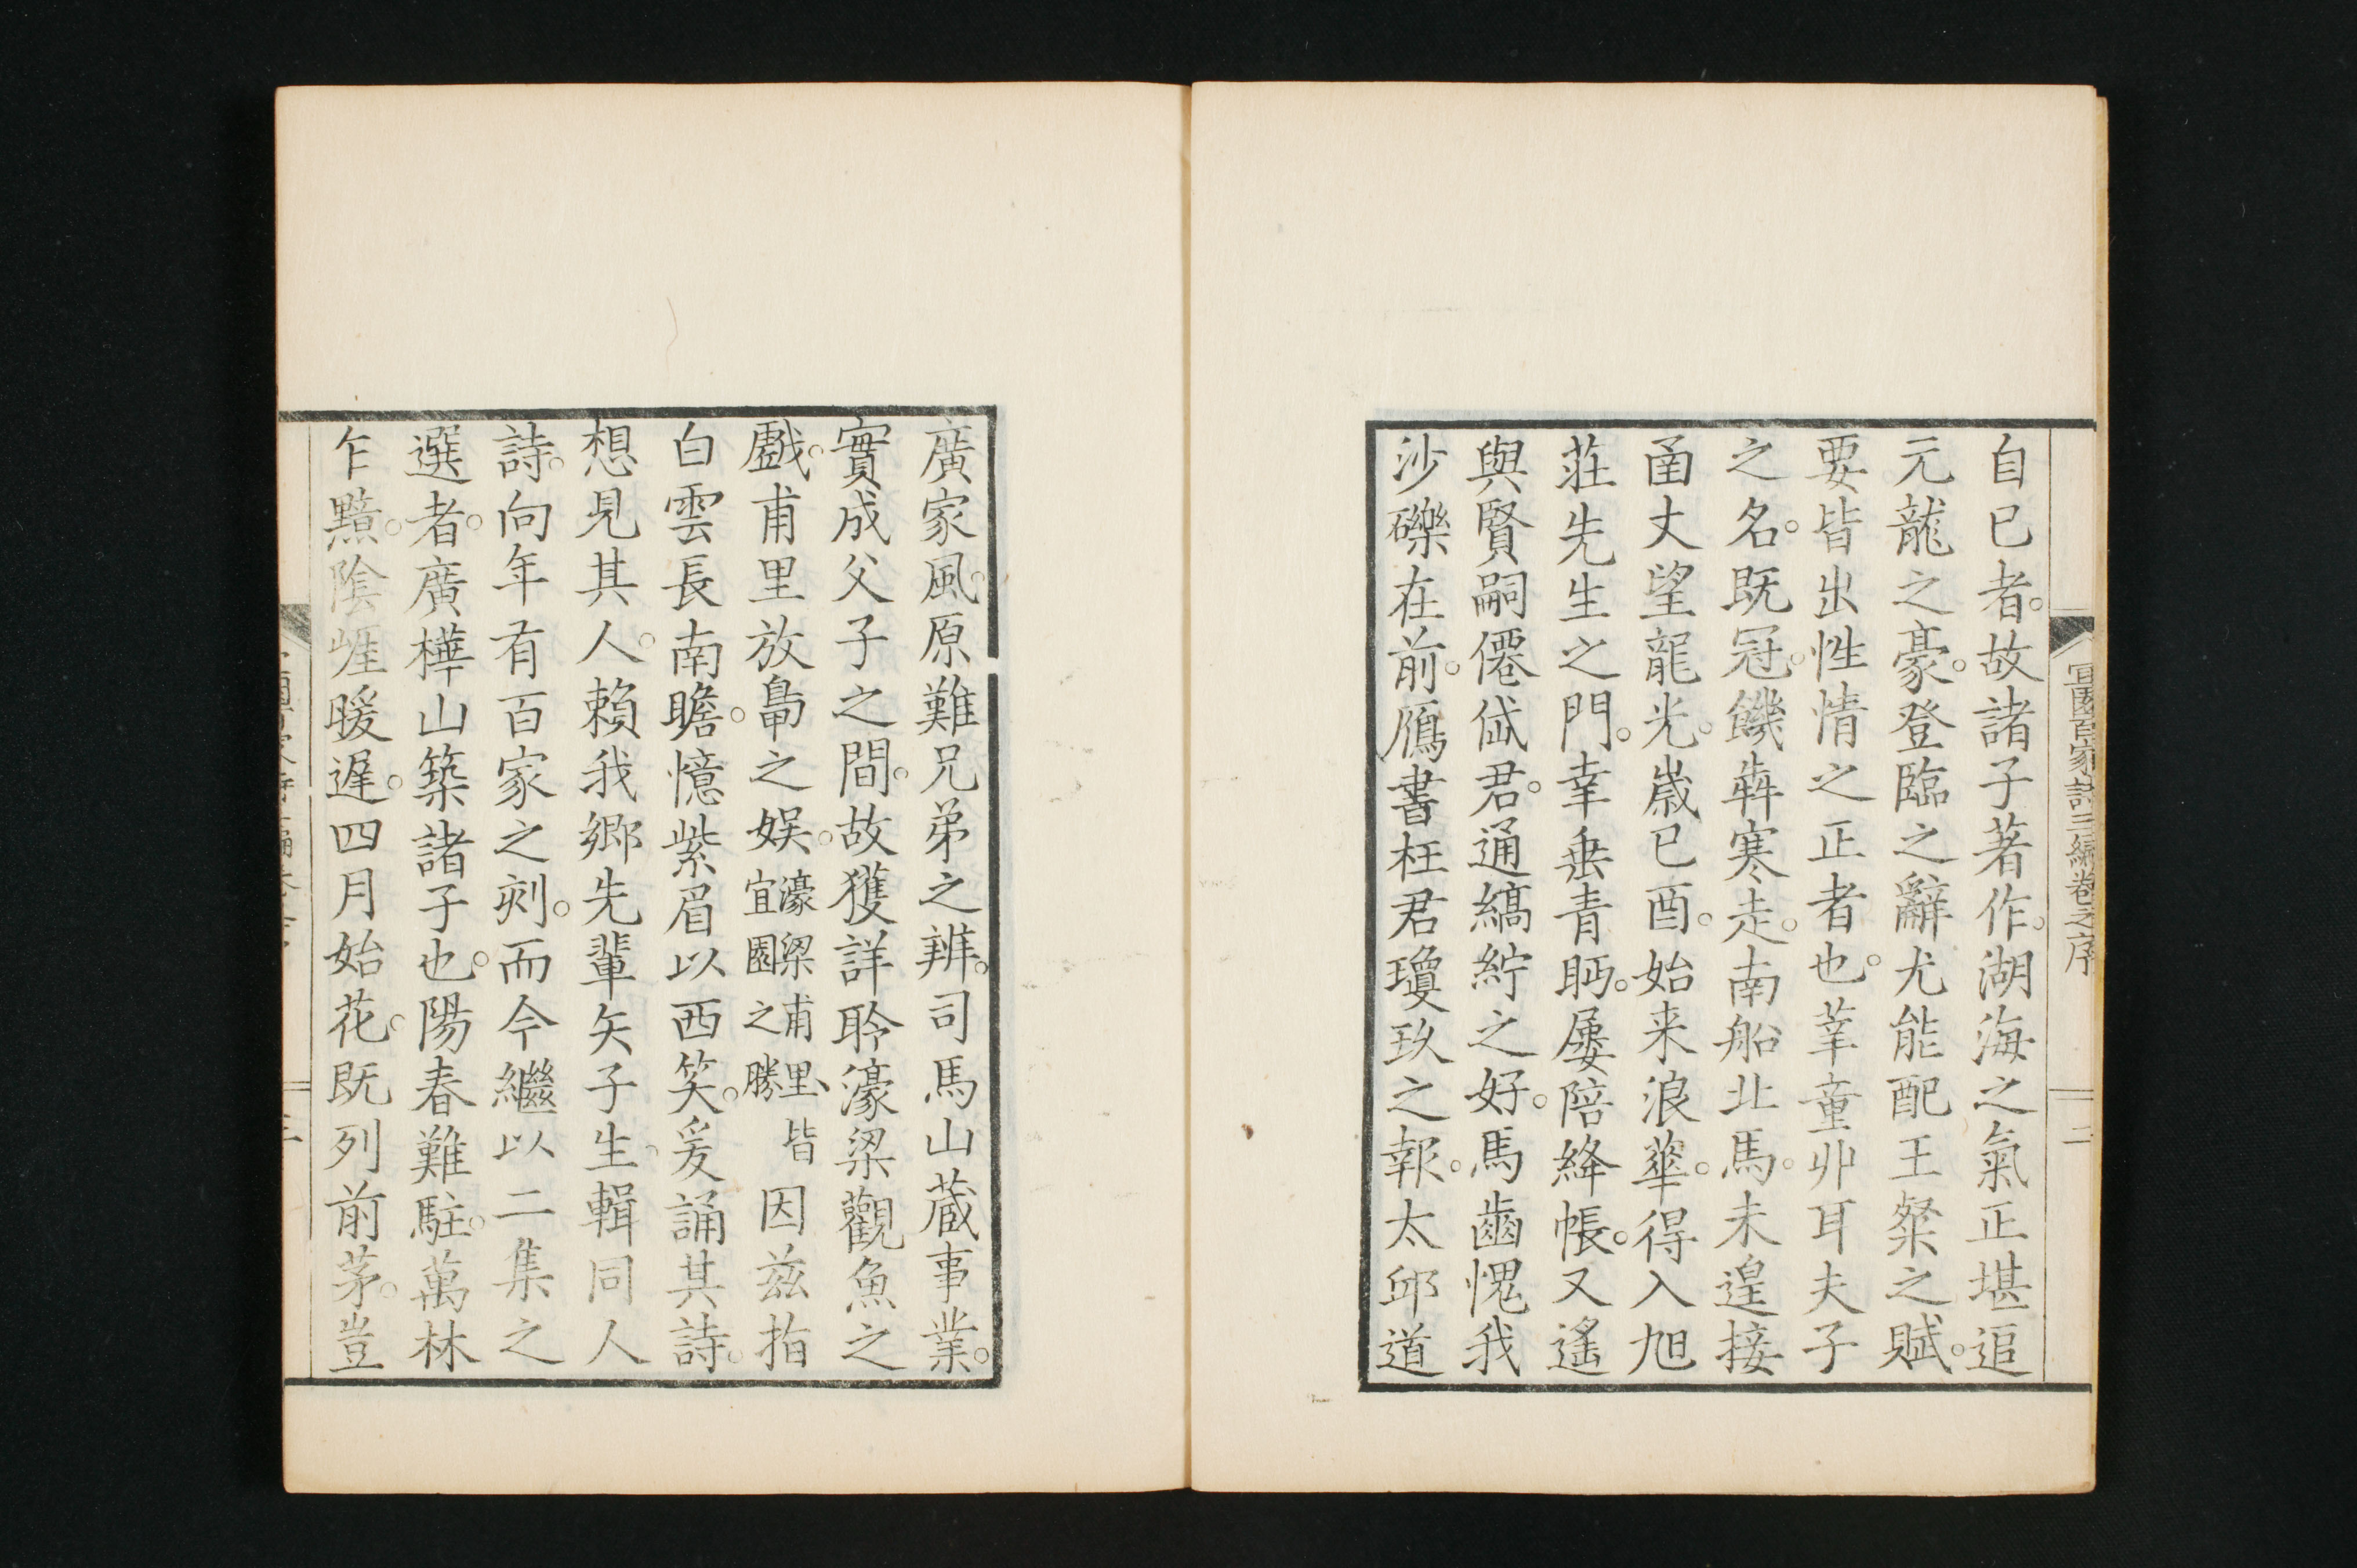 宜園百家詩二編卷之序
二
自已者。故諸子著作。湖海之氣正堪追
元龍之豪。登臨之辭尤能配王粲之賦。
要皆出性情之正者也。華童丱耳夫子
之名。既冠。饑犇寒走。南船北馬。未遑接
函丈望龍光。嵗已酉。始来浪華。得入旭
莊先生之門。幸垂青眄。屡陪絳帳。又遙
與賢嗣僊岱君。通縞紵之好。馬齒愧我
沙礫在前。鴈書枉君瓊玖之報。太邱道
廣家風。原難兄弟之辨。司馬山蔵事業。
實成父子之間。故獲詳聆濠梁觀魚之
戲。甫里放鳧之娯。濠梁甫里、皆宜園之勝因兹指
白雲長南瞻。憶紫眉以西笑。爰誦其詩。
想見其人。賴我郷先輩矢子生、輯同人
詩。向年有百家之刻。而今繼以二集之
選者。廣樺山築諸子也。陽春難駐。萬林
乍黯。陰崕暖遲。四月始花。既列前茅。豈